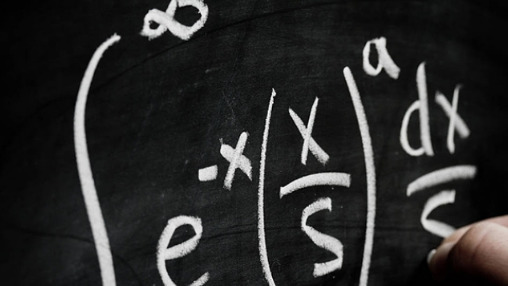 ∫^∞ e^{-x} (x/s)^a dx/s